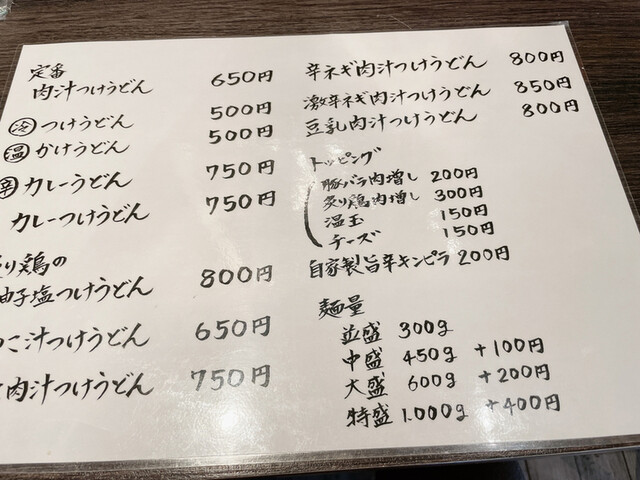 定番
肉汁つけうどん 650円
冷 つけうどん 500円
温 かけうどん 500円
辛 カレーうどん 750円
カレーつけうどん 750円
り鶏の
子塩つけうどん 800円
こ汁つけうどん 650円
肉汁つけうどん 750円
辛ネギ肉汁つけうどん 800円
激辛ネギ肉汁つけうどん 850円
豆乳肉汁つけうどん 800円
トッピング
豚バラ肉増し 200円
炙り鶏肉増し 300円
温玉 150円
チーズ 150円
自家製旨辛キンピラ 200円
麺量
並盛 300g
中盛 450g +100円
大盛 600g +200円
特盛 1.000g +400円